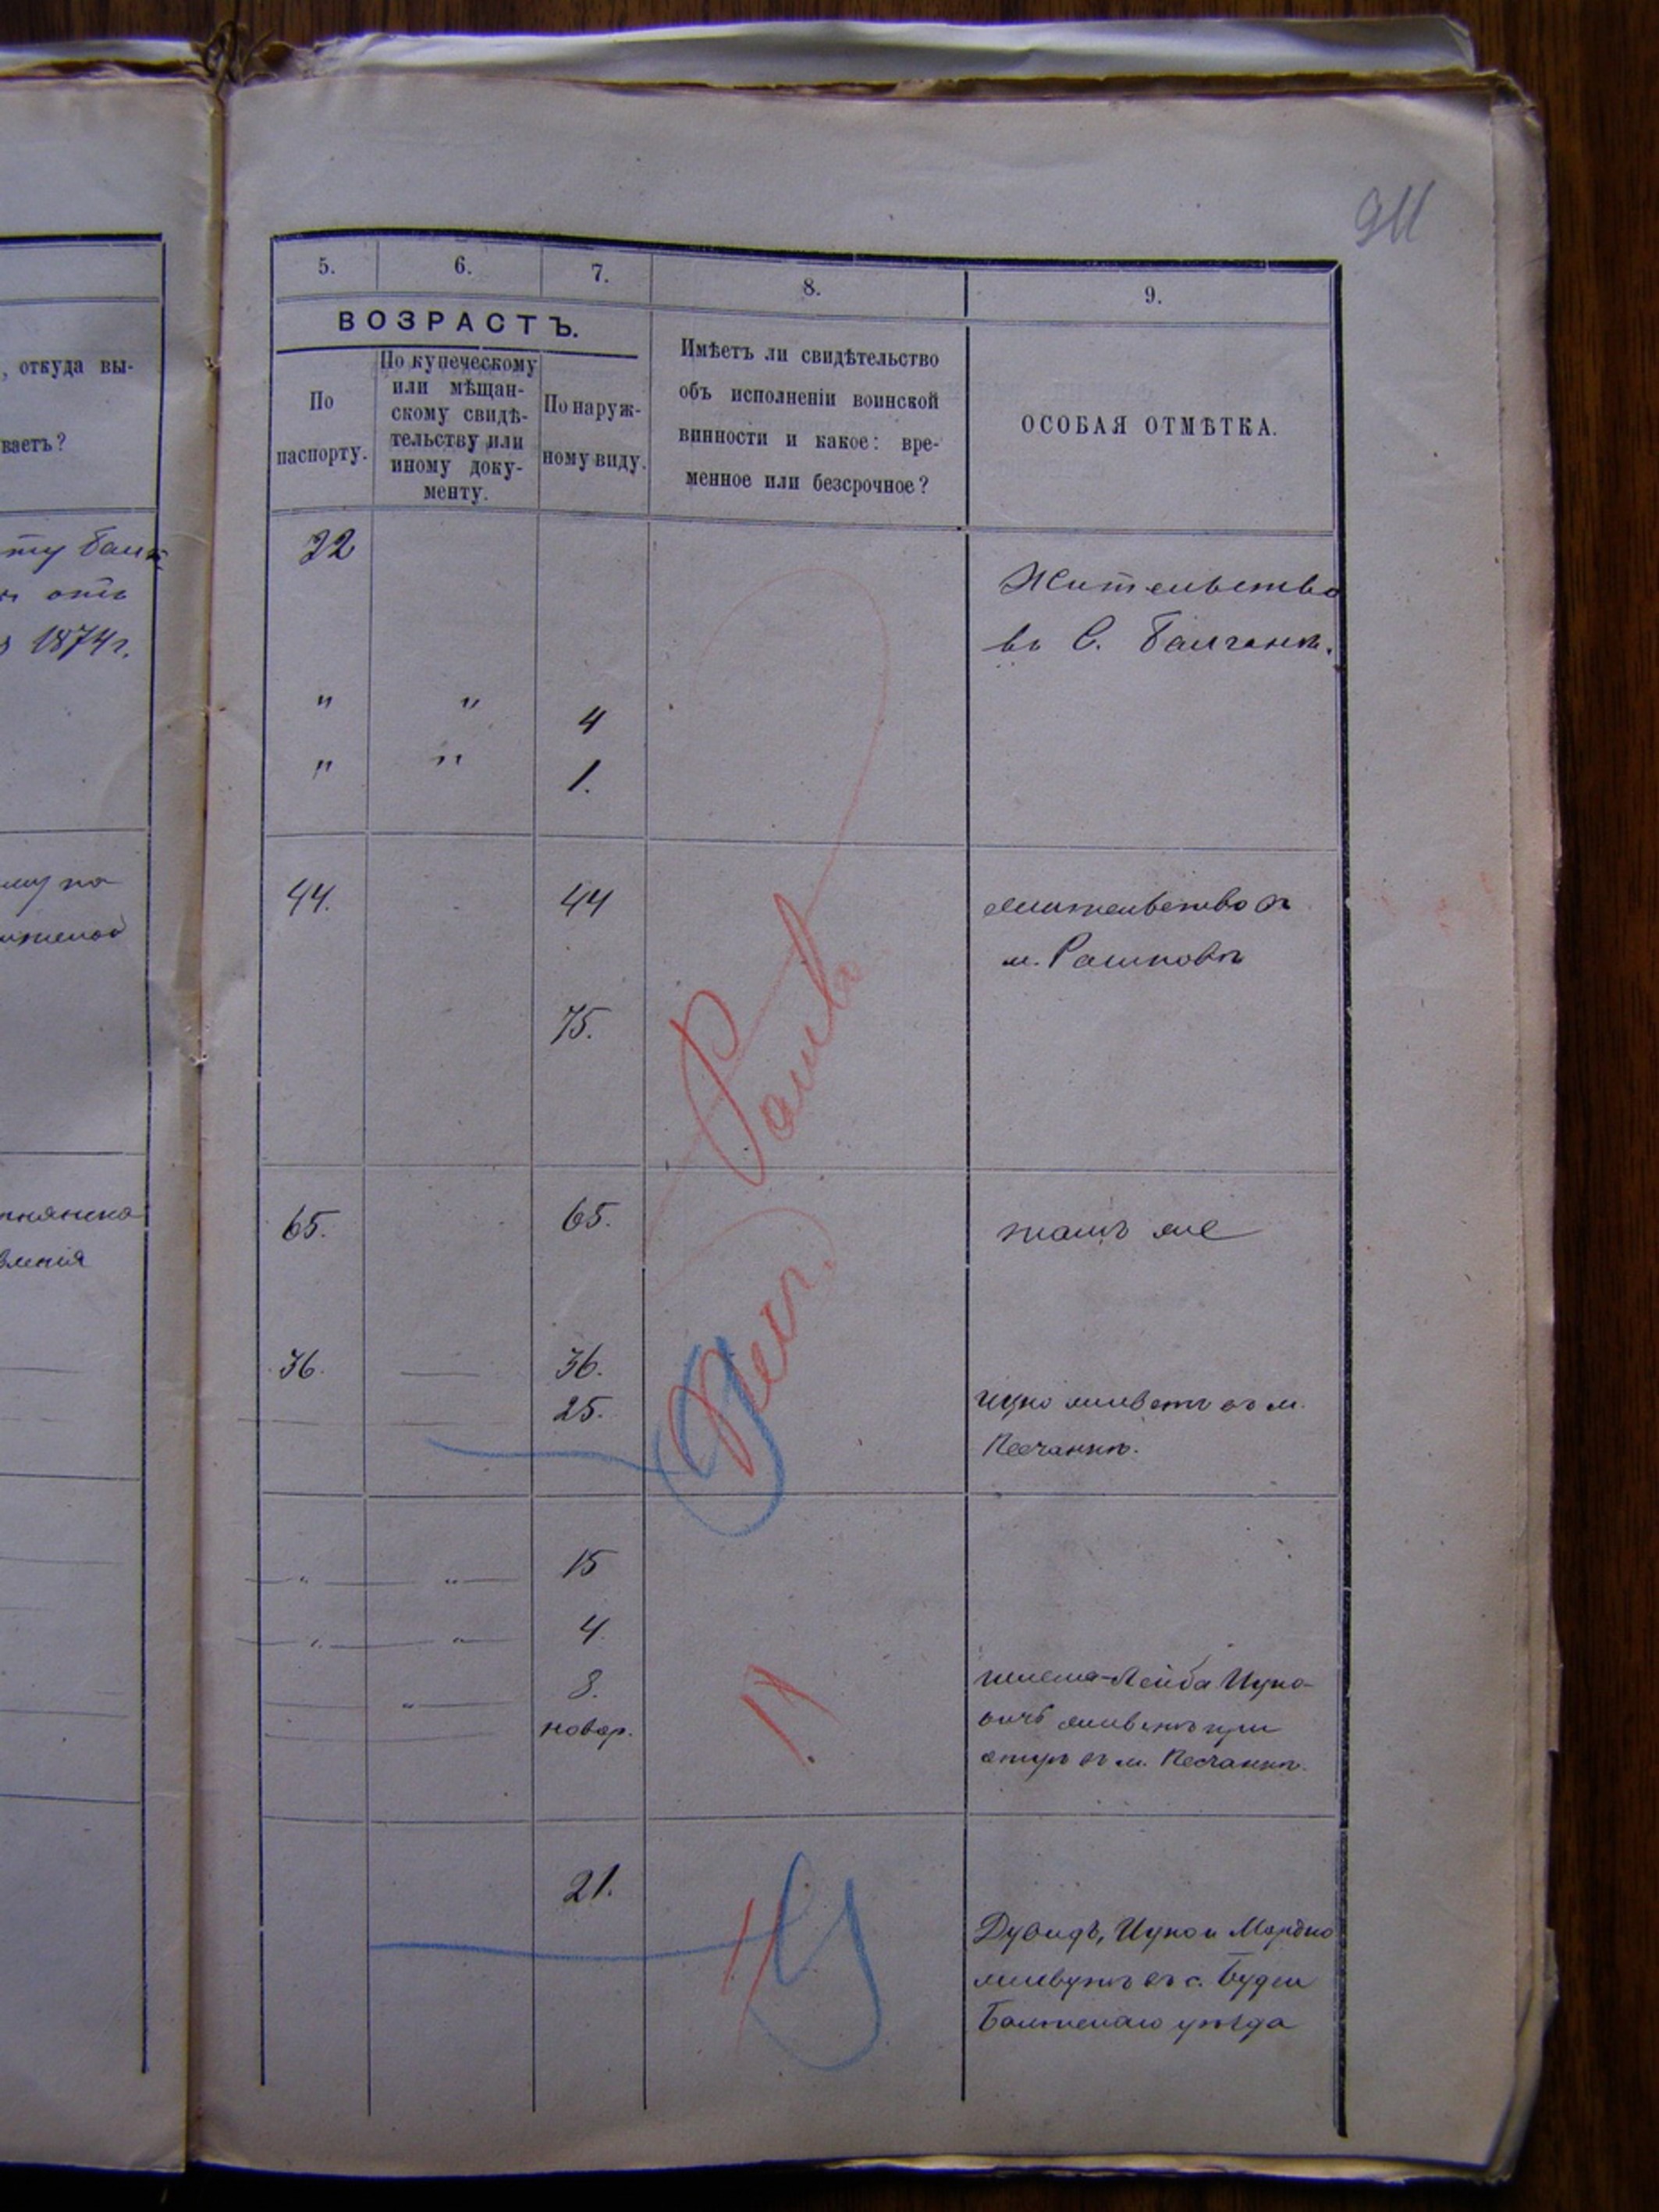 911
, откуда вы-
ваетъ?
ту Балт
отъ
1874 г.
5. 6. 7. 8. 9.
ВОЗРАСТЪ.
По паспорту.
По купеческому
или мѣщан-
скому свидѣ-
тельству или
иному доку-
менту.
По наруж-
ному виду.
Имѣетъ ли свидѣтельство
объ исполненіи воинской
винности и какое: вре-
менное или безсрочное?
ОСОБАЯ ОТМѢТКА.
22
Жительство
въ С. Балганѣ.
" " 4
" " 1.
44. 44 жительство въ
м. Рашковѣ
75.
65. 65. тамъ же
36. — 36.
25. Ицко живетъ въ м.
Песчанкѣ.
" " 15
" " 4.
" 8.
новор.
Шлема-Лейба Ицко-
вичъ живетъ при
отцѣ въ м. Песчанкѣ.
21.
Дувидъ, Ицко и Мордко
живутъ въ с. Будеи
Балтскаго уѣзда